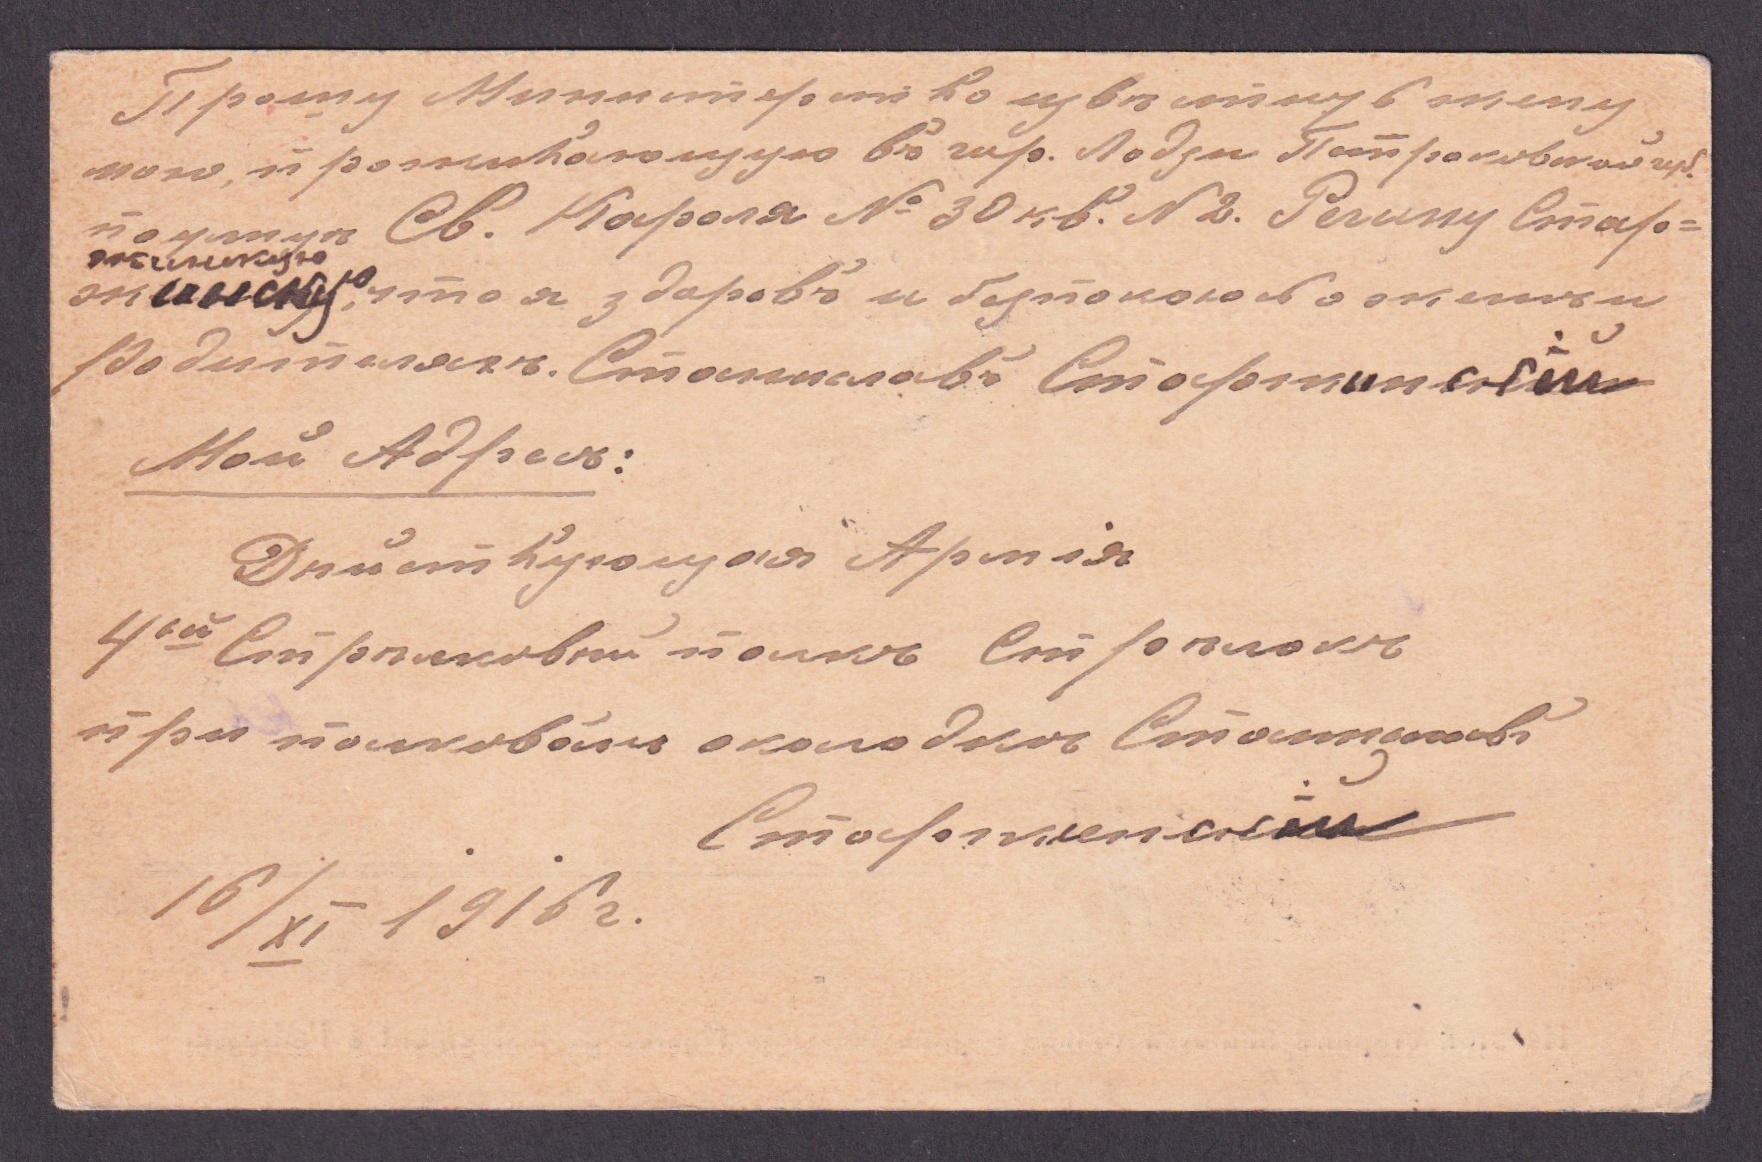 Прошу Министерство извѣстить жену
мою, проживающую въ гор. Лодзи Петроковской губ.
по улицѣ Св. Кароля № 30 кв. N 2. Регину Стар=
жинскую
жинскую, что я здоровъ и безпокоюсь о женѣ и
родителяхъ. Станиславъ Старжинскій
Мой Адресъ:
Дѣйствующая Армія
4ый Стрѣлковый полкъ Стрѣлокъ
при полковомъ околодкѣ Станиславъ
Старжинскій
16/XI 1916 г.